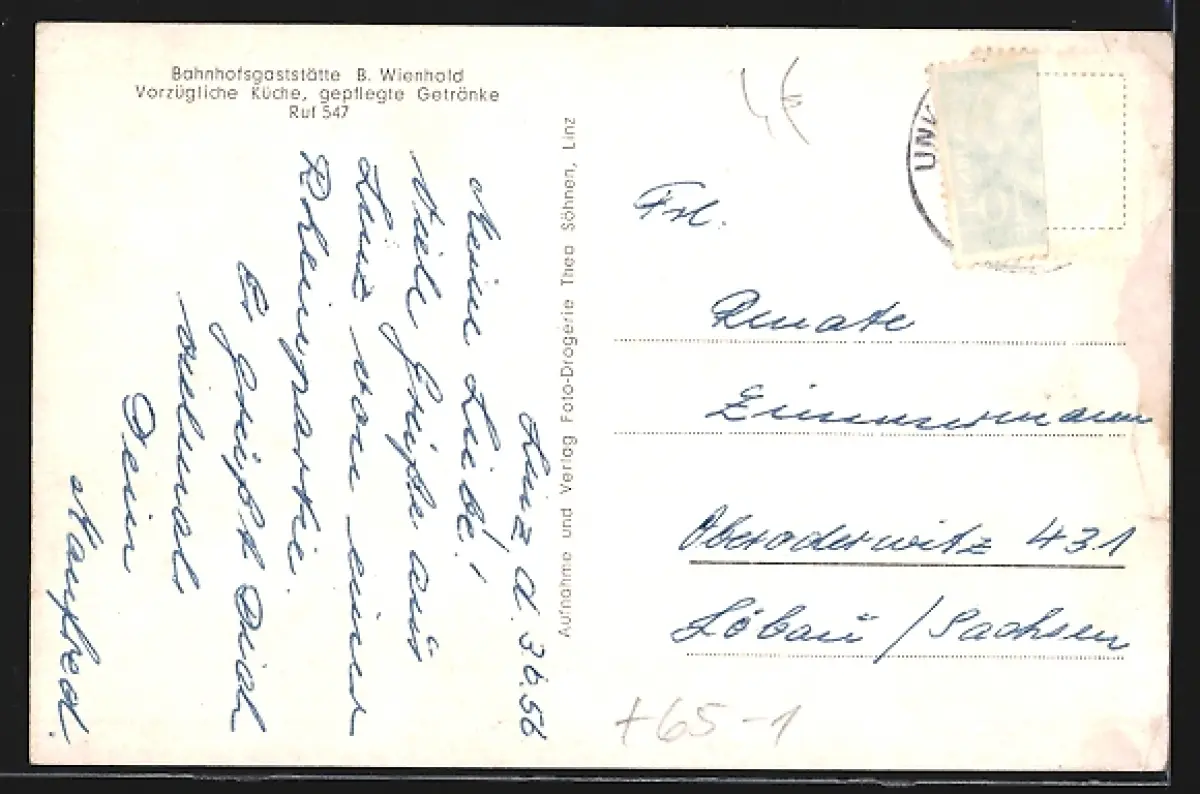 Bahnhofsgaststätte B. Wienhold
Vorzügliche Küche, gepflegte Getränke
Ruf 547
Linz d. 3.6.56
Meine Liebe!
Viele Grüße aus
Linz von einer
Rheinpartie.
Es grüßt Dich
vielmals
Dein
Manfred.
Aufnahme und Verlag Foto-Drogerie Theo Söhnen, Linz
UNK
Frl.
Renate
Zimmermann
Oberoderwitz 431
Löbau / Sachsen
+65-1